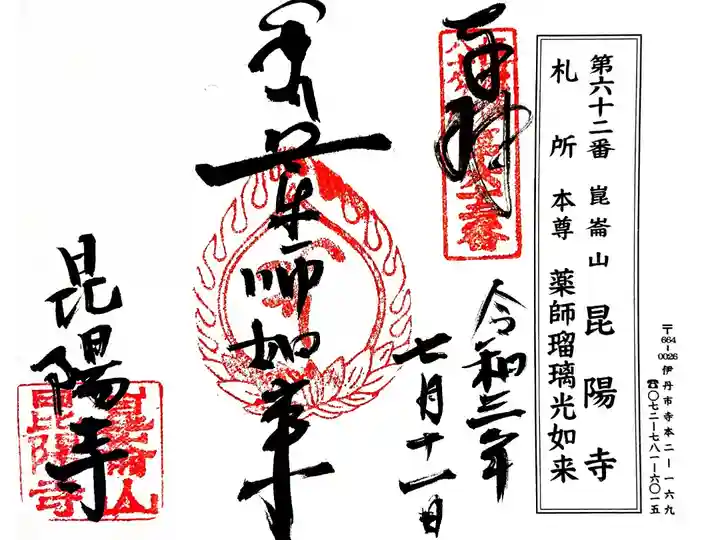 第六十二番 崑崙山 昆陽寺
札所 本尊 薬師瑠璃光如来
〒664-0026 伊丹市寺本二-一六九
☎〇七二-七八一-六〇一五
奉拝
令和三年
七月十一日
薬師如来
昆陽寺
崑崙山
昆陽寺